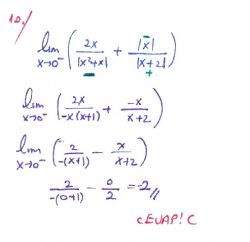 10./
lim x→0⁻ ( 2x / |x²+x| + |x| / |x+2| )
lim x→0⁻ ( 2x / -x(x+1) + -x / x+2 )
lim x→0⁻ ( 2 / -(x+1) - x / x+2 )
2 / -(0+1) - 0 / 2 = -2 //
CEVAP! C